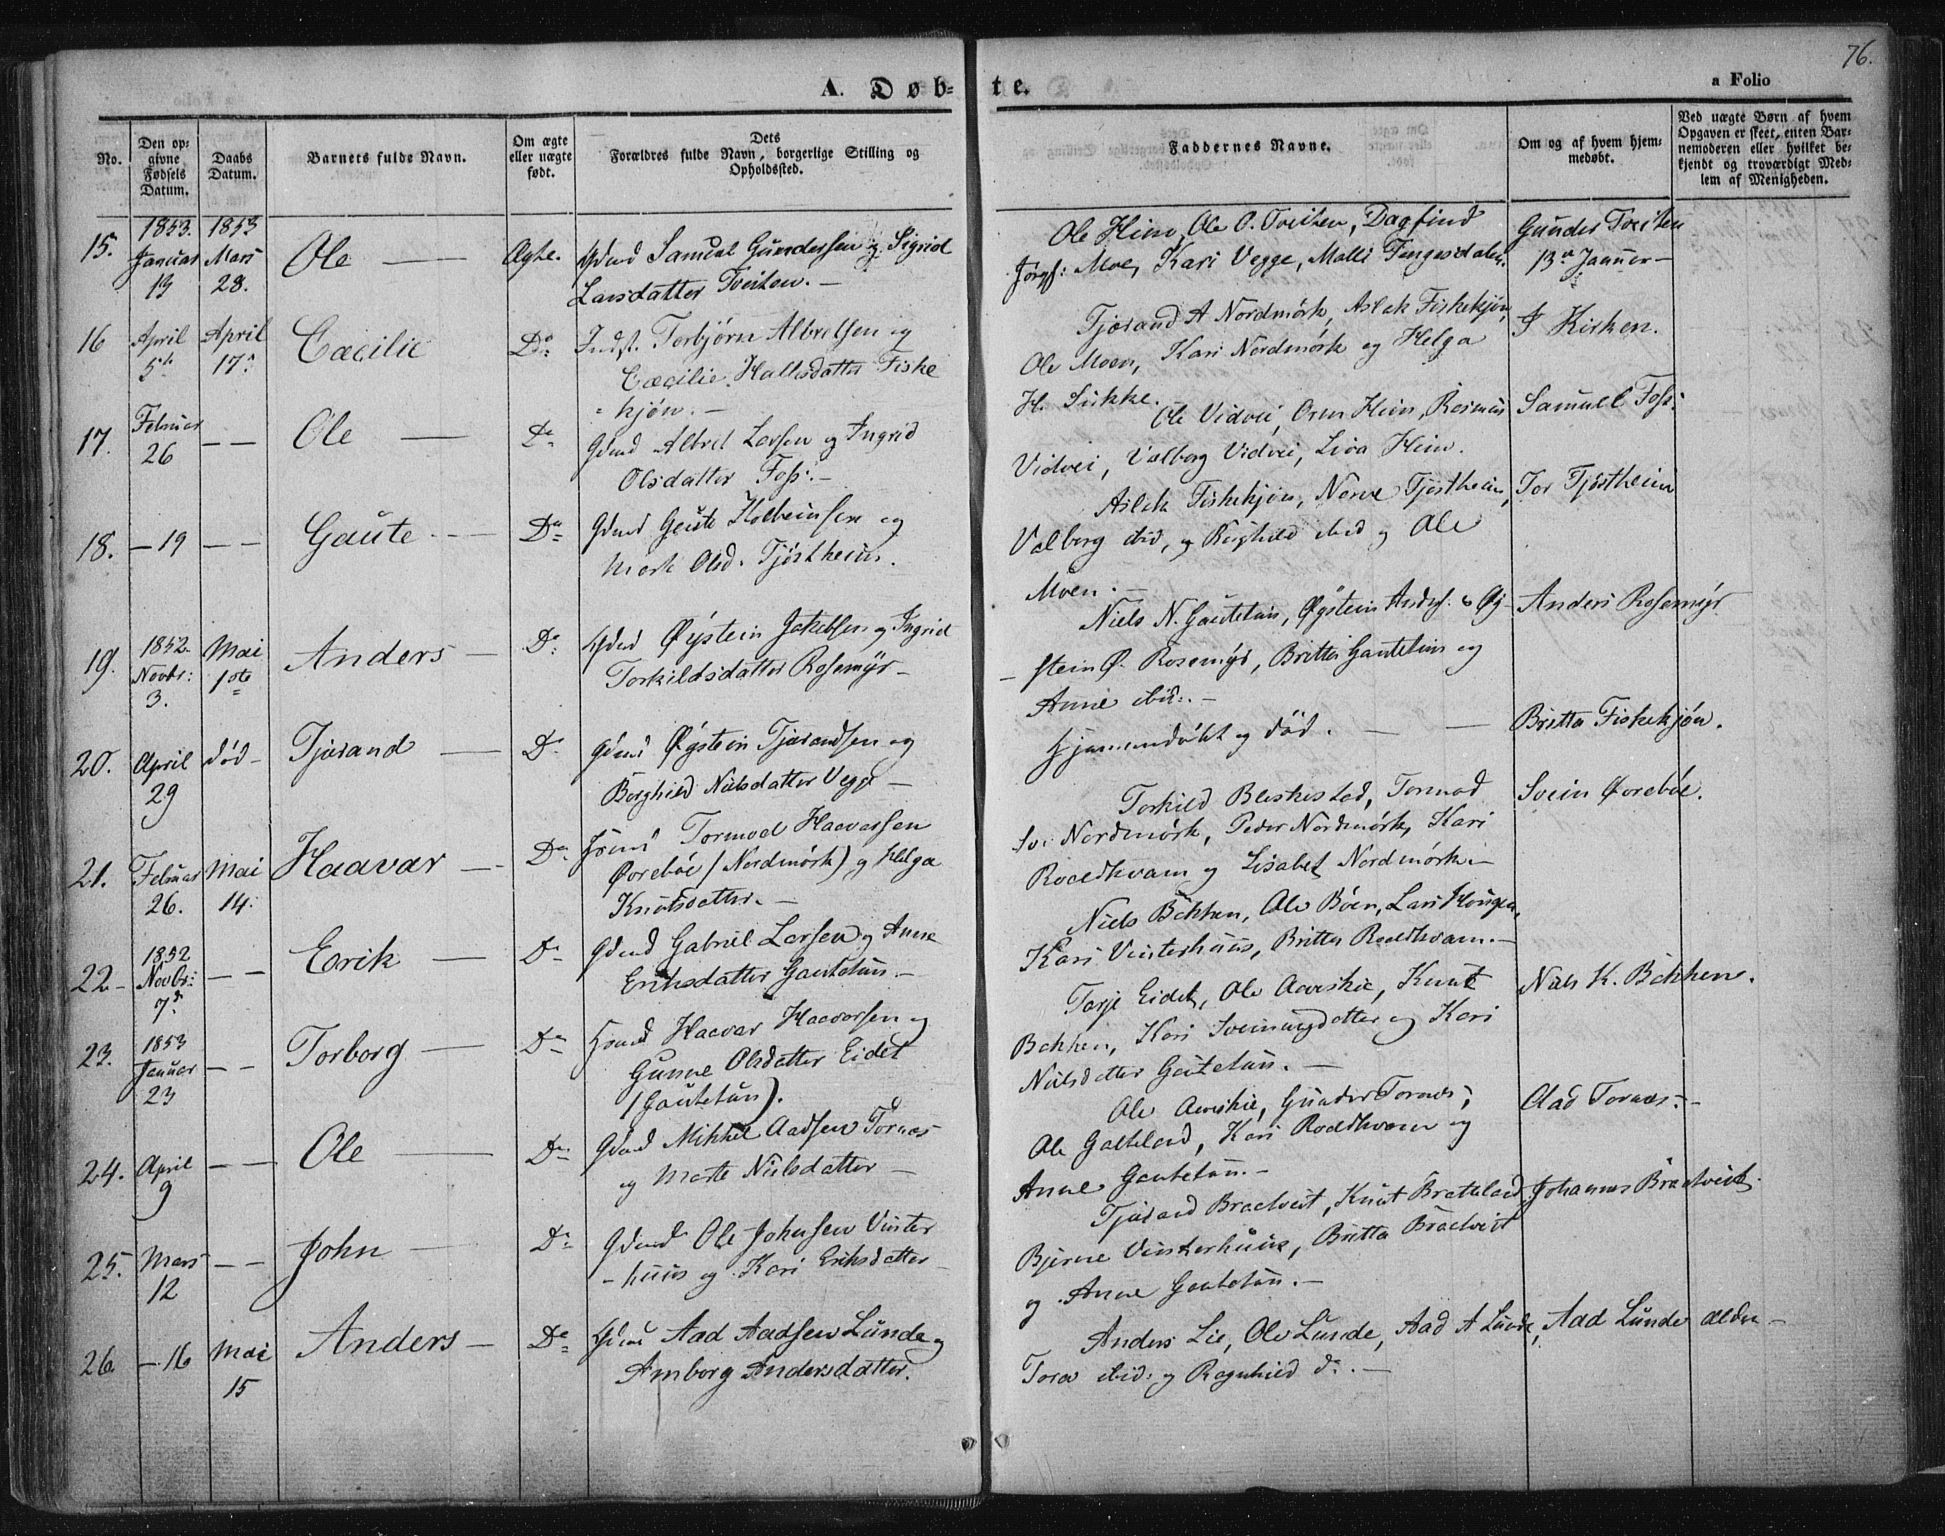 76.
A. Døbte.
a Folio
No.
Den opgivne Fødsels Datum.
Daabs Datum.
Barnets fulde Navn.
Om ægte eller uægte født.
Dets Forældres fulde Navn, borgerlige Stilling og Opholdssted.
Faddernes Navne.
Om og af hvem hjemmedøbt.
Ved uægte Børn af hvem Opgaven er skeet, enten Barnemoderen eller hvilket bekjendt og troværdigt Medlem af Menigheden.
15. 1853. Januar 13 1853 Mars 28. Ole — Ægte. Gdmd Samuel Gundersen og Sigrid
Larsdatter Tveiten. —
Ole Heim, Ole O. Tveiten, Dagfind
Jørgs: Moe, Kari Vegge, Malli Tengesdalen.
Gunder Tveiten
13de Januar —
16 April 5te April 17de Cæcilie Do Indst. Torbjørn Albretsen og
Cæcilie Hallesdatter Fiske
kjøn. —
Tjærand A Nordmørk, Aslak Fiskekjøn,
Ole Moen, Kari Nordmørk og Helga
H. Sukke.
I Kirken.
17. Februar 26 — — Ole — Do Gdmd Albret Larsen og Ingrid
Olsdatter Foss. —
Ole Vidvei, Orm Heim, Rasmus
Vidvei, Valborg Vidvei, Liva Heim.
Samuel Foss:
18. — 19 — — Gaute — Do Gdmd Gaute Kolbeinsen og
Marte Olsd. Tjøstheim.
Aslak Fiskekjøn, Norve Tjøstheim,
Valborg ibid, og Ragnhild ibid og Ole
Moen. —
Tor Tjøstheim
19. 1852. Novbr: 3. Mai 1ste Anders — Do Gdmd Øystein Jakobsen og Ingrid
Torkildsdatter Rosemyr —
Niels N. Gautetun, Øystein Anders. & Øy-
stein Ø. Rosemyr, Britta Gautetun og
Anne ibid: —
Anders Rosemyr
20. April 29 død — Tjærand — Do Gdmd Øystein Tjærandsen og
Borghild Nielsdatter Vegge —
Hjemmendøbt og død. —
Britta Fiskekjøn.
21. Februar 26. Mai 14. Haavar — Do Tormod Haavarsen
Ørebøe (Nordmørk) og Helga
Knutsdatter. —
Torkild Bleskestad, Tormod
Nordmørk, Peder Nordmørk, Kari
Roaldkvam og Lisabet Nordmørk. —
Svein Ørebøe.
22 — 1852 Novbr: 7de — — Erik — Do Gdmd Gabriel Larsen og Anne
Eriksdatter Gautetun. —
Niels Bakken, Ole Bøen, Lars Hougen,
Kari Vinterhuus, Britta Roaldkvam. —
23. 1853 Januar 23 — — Torborg — Do Haavar Haavarsen og
Gunne Olsdatter Eidet
(Gautetun).
Tarje Eidet, Ole Aareskie, Knut
Bakken, Kari Sveinungsdatter og Kari
Nielsdatter Gautetun. —
Niels K. Bakken.
24. April 9 — — Ole — Do Gdmd Mikkel Aadsen Tornæs
og Marte Nielsdatter —
Ole Aareskie, Gunder Tornæs,
Ole Galteland, Kari Roaldkvam og
Anne Gautetun. —
Aad Tornæs: —
25. Mars 12 — — John — Do Gdmd Ole Johnsen Vinter
huus og Kari Eriksdatter —
Tjærand Bradtveit, Knut Bratteland
Bjerne Vinterhuus, Britta Bradtveit
og Anne Gautetun. —
Johannes Bradtveit.
26 — 16 Mai 15 Anders — Do Gdmd Aad Aadsen Lunde og
Amborg Andersdatter.
Anders Lie, Ole Lunde, Aad A Lunde,
Tora ibid: og Ragnhild do. —
Aad Lunde ældre —